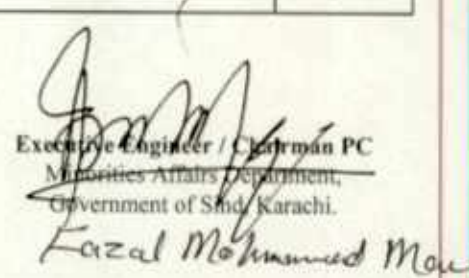 Executive Engineer / Chairman PC
Minorities Affairs Department,
Government of Sind, Karachi.
Fazal Mohammed